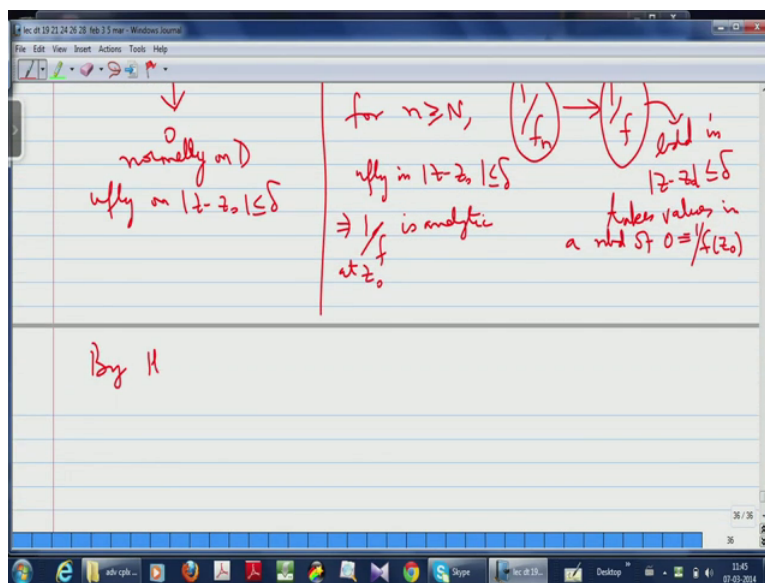 lec dt 19 21 24 26 28 feb 3 5 mar - Windows Journal
File Edit View Insert Actions Tools Help
↓
0
normally on D
ufly on |z-z₀|≤δ
for n≥N, 1/fₙ → 1/f
bdd in
|z-z₀|≤δ
ufly in |z-z₀|≤δ
takes values in
a nbd of 0=1/f(z₀)
⇒ 1/f is analytic
at z₀
By H
36 / 36
36
adv cplx ...
Skype
lec dt 19...
Desktop
11:45
07-03-2014